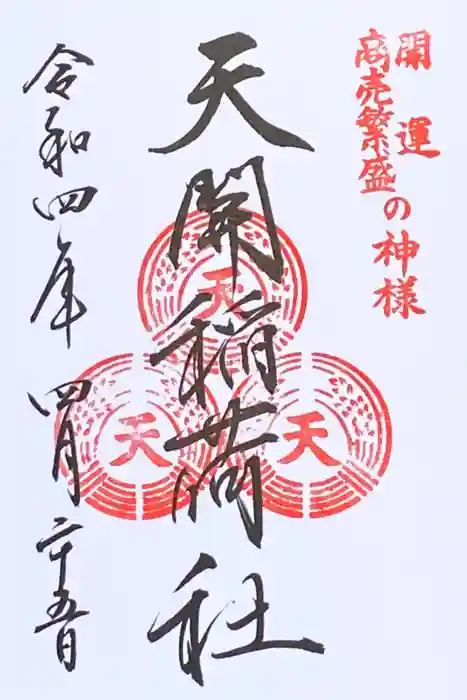 開運
商売繁盛の神様
天開稲荷社
天
天
天
令和四年四月二十五日